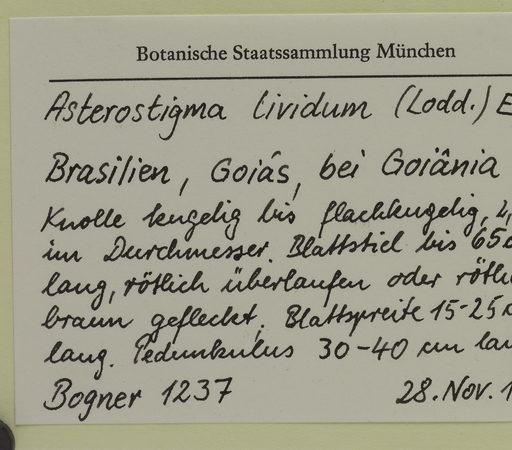 Botanische Staatssammlung München
Asterostigma lividum (Lodd.) E
Brasilien, Goiás, bei Goiânia
Knolle kugelig bis flachkugelig, 4,
im Durchmesser. Blattstiel bis 65
lang, rötlich überlaufen oder rötli
braun gefleckt. Blattspreite 15-25
lang. Pedunkulus 30-40 cm lan
Bogner 1237 28. Nov. 1